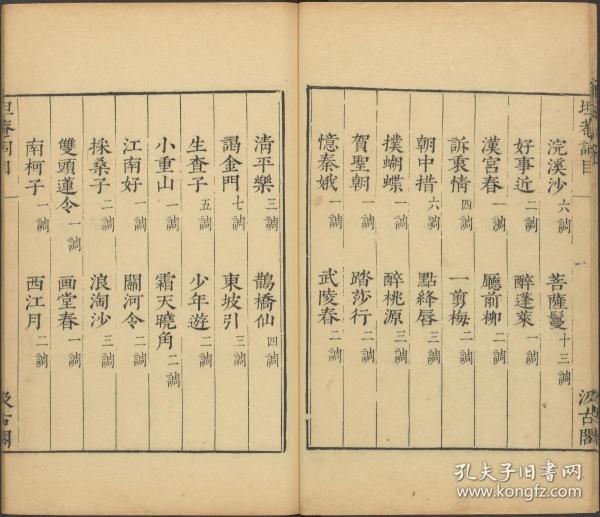 坦菴詞目 一
汲古閣
浣溪沙 六調 菩薩鬘 十三調
好事近 二調 醉蓬萊 一調
漢宮春 一調 廳前柳 二調
訴衷情 四調 一剪梅 二調
朝中措 六調 點絳唇 三調
撲蝴蝶 一調 醉桃源 三調
賀聖朝 一調 踏莎行 二調
憶秦娥 一調 武陵春 二調
清平樂 三調 鵲橋仙 四調
謁金門 七調 東坡引 三調
生查子 五調 少年遊 二調
小重山 一調 霜天曉角 二調
江南好 一調 關河令 二調
採桑子 二調 浪淘沙 三調
雙頭蓮令 一調 画堂春 一調
南柯子 一調 西江月 二調
坦菴詞目 一
汲古閣
孔夫子旧书网
www.kongfz.com